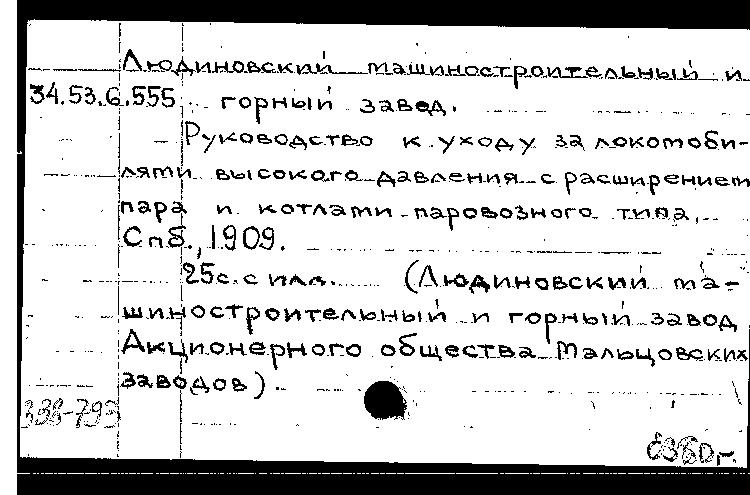 Людиновский машиностроительный и
34.53.6.555 горный завод.
Руководство к уходу за локомоби-
лями высокого давления с расширением
пара и котлами паровозного типа,
Спб., 1909.
25с. с илл. (Людиновский ма-
шиностроительный и горный завод
Акционерного общества Мальцовских
заводов).
338-793